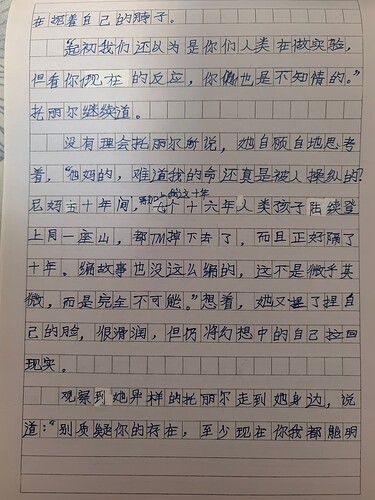 在掐着自己的脖子。
“起初我们还以为是你们人类在做实验,
但看你现在的反应,你俩也是不知情的。”
托丽尔继续道。
没有理会托丽尔所说,她自顾自地思考
着,“他妈的,难道我的命还真是被人操纵的?
尼妈五十年间,再加上我这十年
每个十六年人类孩子陆续登
上同一座山,都TM掉下去了,而且正好隔了
十年。编故事也没这么编的,这不是微乎其
微,而是完全不可能。”想着,她又捏了捏自
己的脸,很滑润,但仍将幻想中的自己拉回
现实。
观察到她异样的托丽尔走到她身边,说
道:“别质疑你的存在,至少现在你我都能明